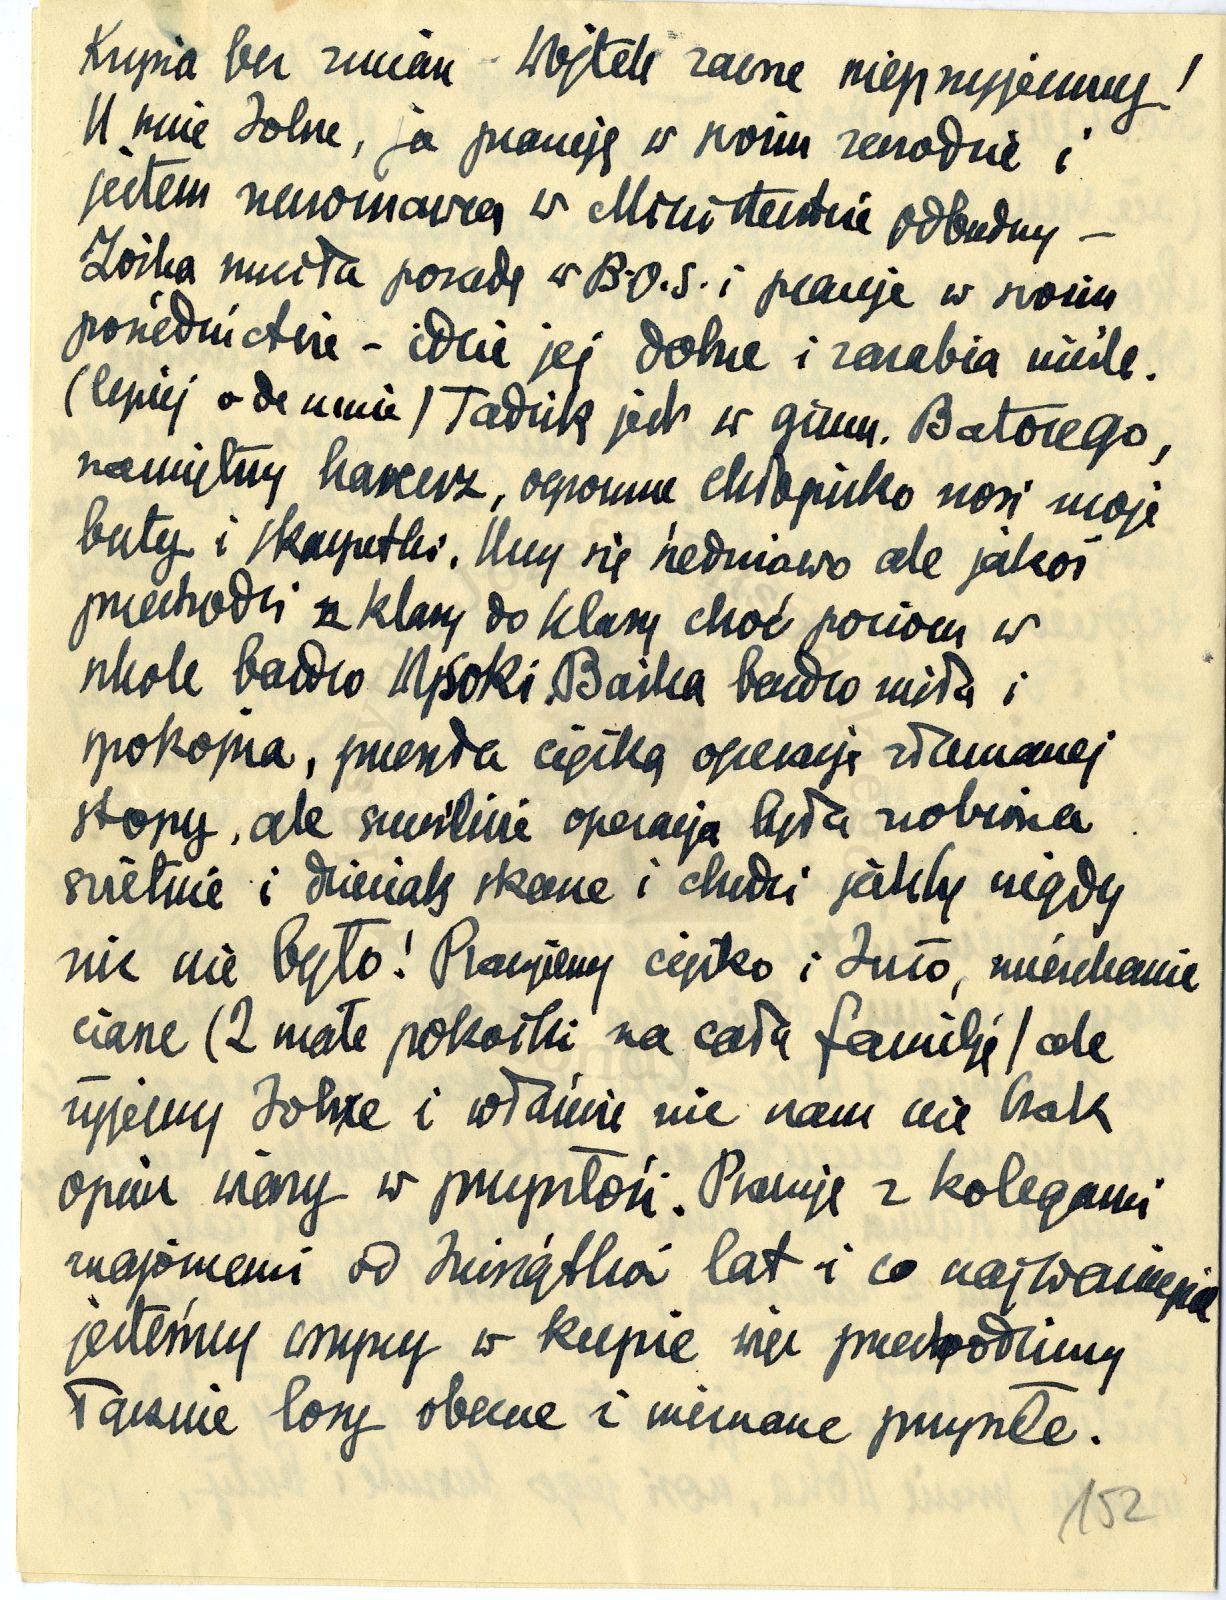 Krysia bez zmian - Wojtek zawsze nieprzyjemny!
U mnie dobrze, ja pracuję w swoim zawodzie i
jestem rzeczoznawcą w Ministerstwie odbudowy –
Zośka rzuciła posadę w B.O.S. i pracuje w swoim
pośrednictwie – idzie jej dobrze i zarabia nieźle.
(lepiej ode mnie) Tadzik jest w gimn. Batorego,
namiętny harcerz, ogromne chłopisko nosi moje
buty i skarpetki. Uczy się średniawo ale jakoś
przechodzi z klasy do klasy choć poziom w
szkole bardzo wysoki. Baśka bardzo miła i
spokojna, przeszła ciężką operację złamanej
stopy, ale szczęśliwie operacja była zrobiona
świetnie i dzieciak skacze i chodzi jakby nigdy
nic nie było! Pracujemy ciężko i dużo, mieszkanie
ciasne (2 małe pokoiki na całą familję) ale
żyjemy dobrze i właściwie nic nam nie brak
oprócz wiary w przyszłość. Pracuję z kolegami
znajomemi od dziesiątków lat i co najważniejsze
jesteśmy wszyscy w kupie więc przechodzimy
łącznie losy obecne i nieznane przyszłe.
152